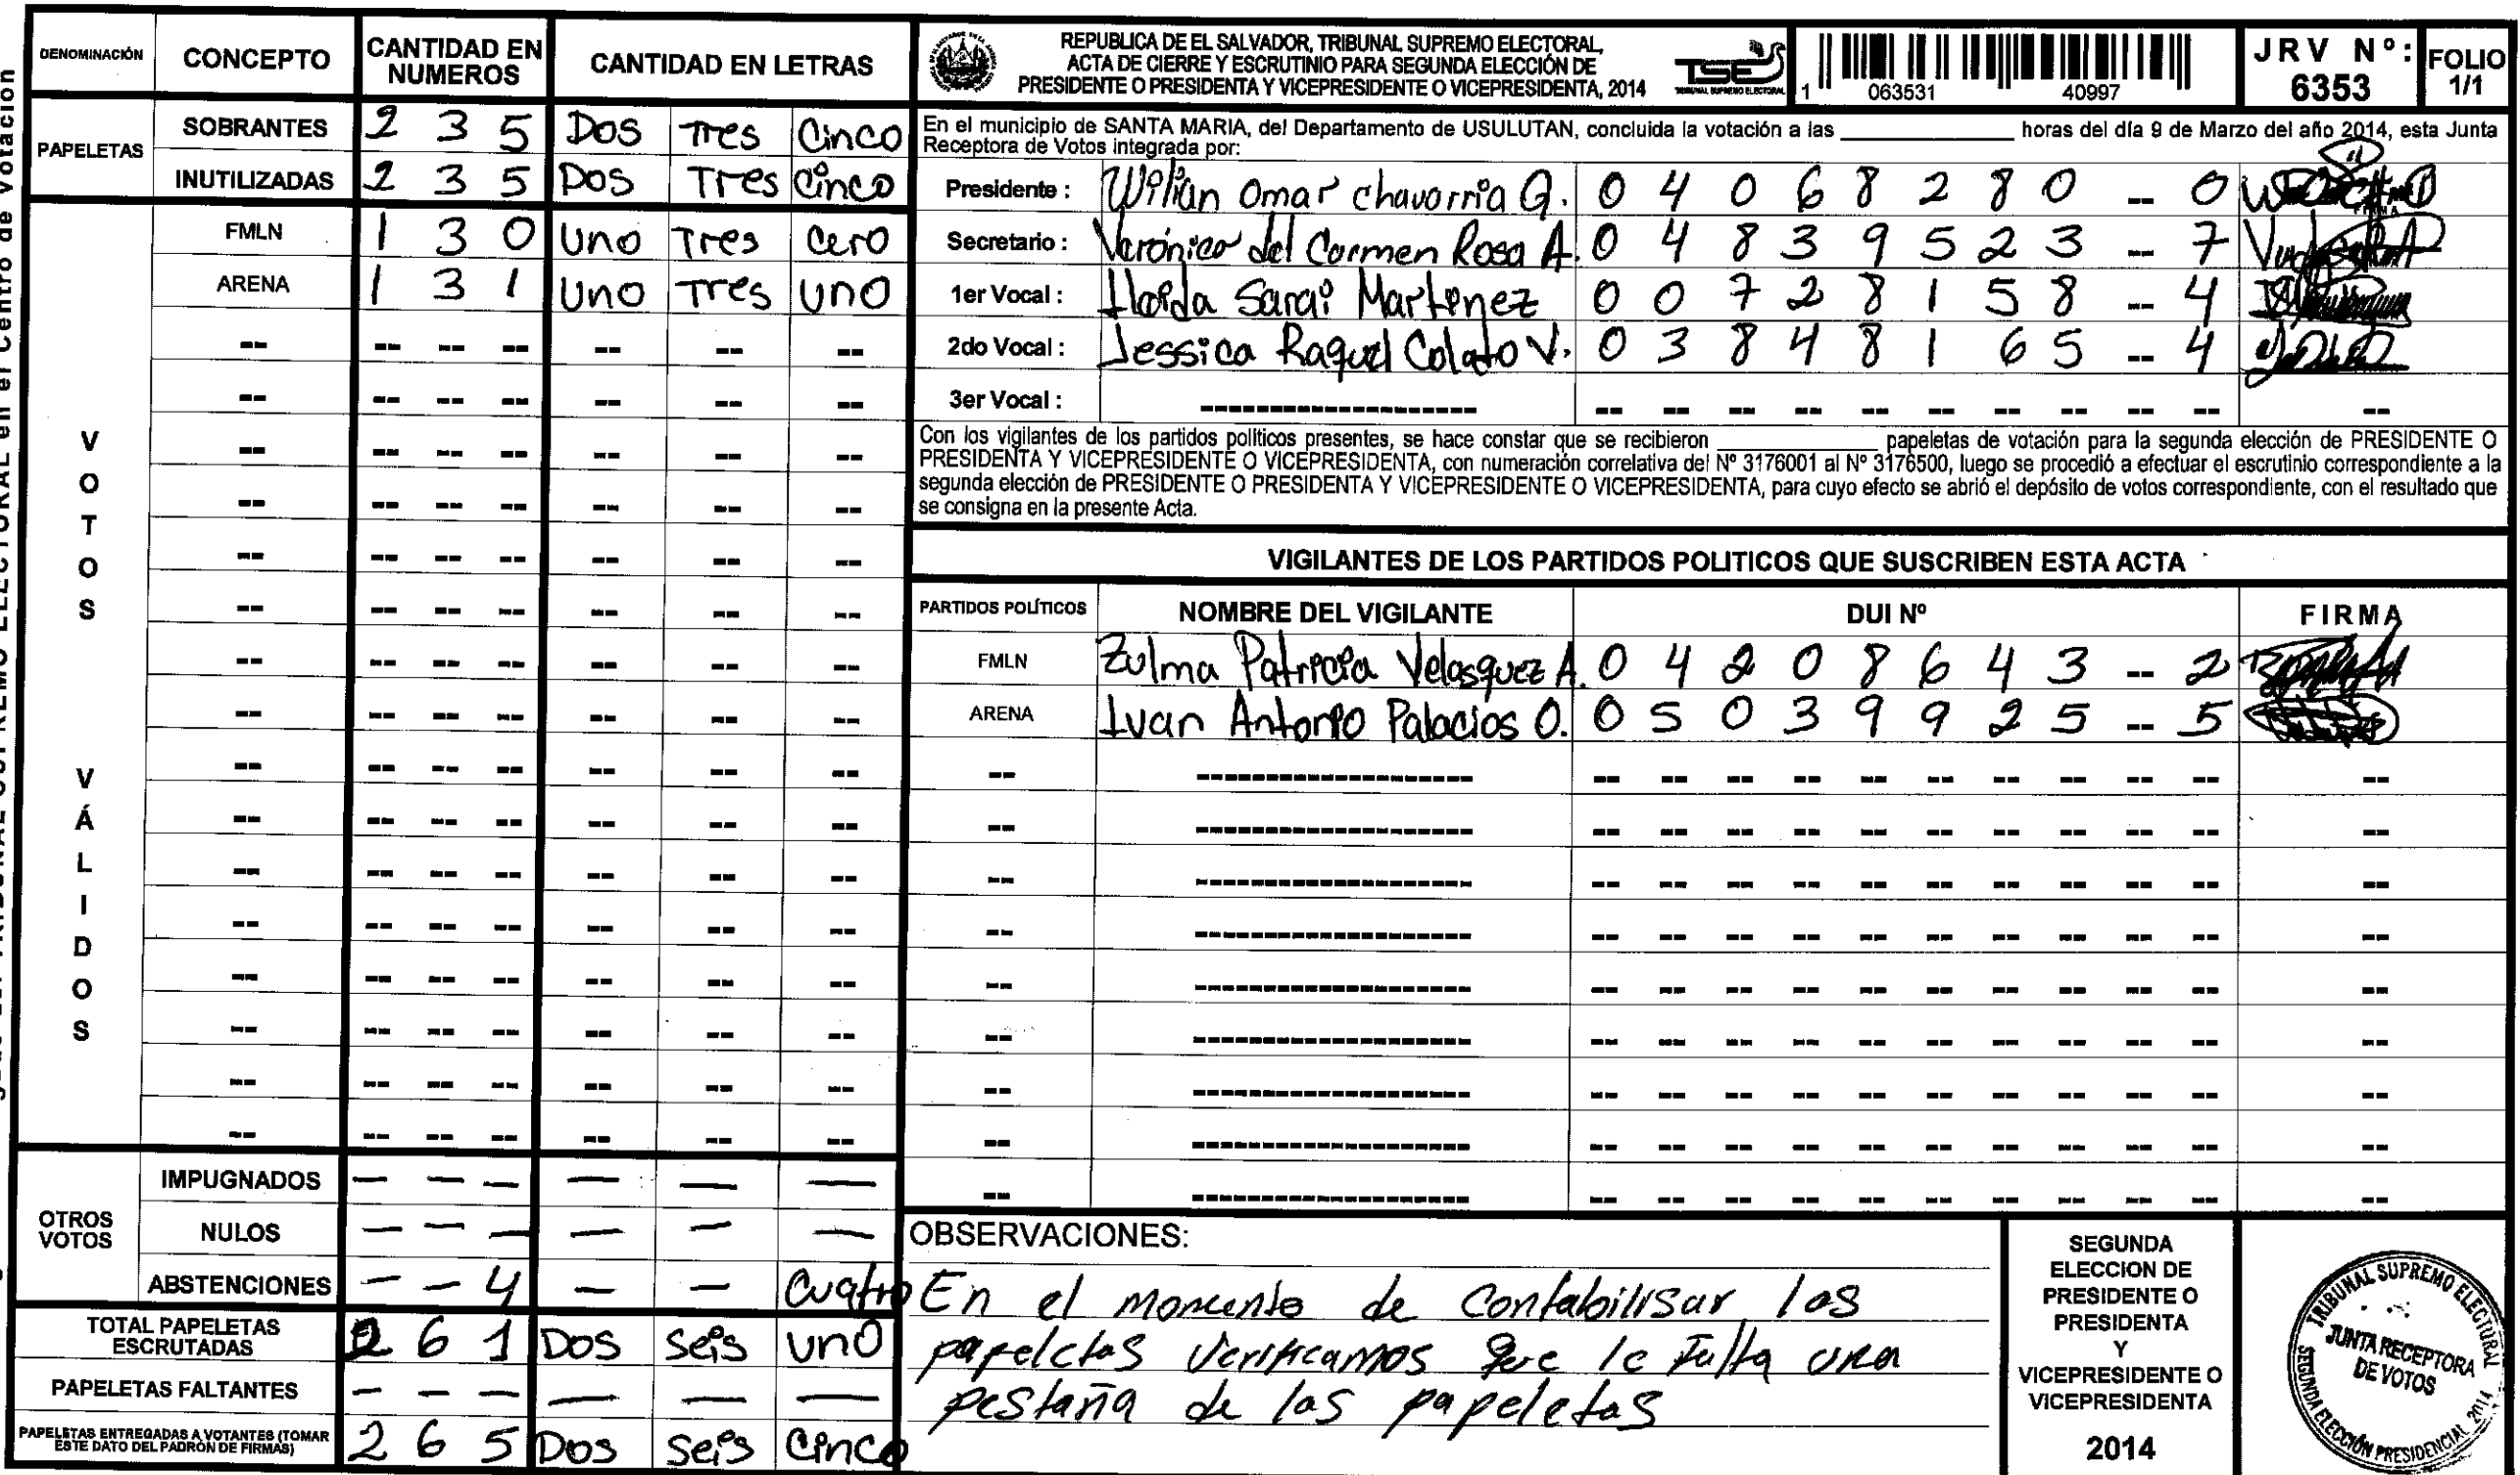 DENOMINACIÓN CONCEPTO CANTIDAD EN NUMEROS CANTIDAD EN LETRAS
PAPELETAS
SOBRANTES 2 3 5 Dos Tres Cinco
INUTILIZADAS 2 3 5 Dos Tres Cinco
VOTOS VÁLIDOS
FMLN 1 3 0 Uno Tres Cero
ARENA 1 3 1 Uno Tres Uno
OTROS VOTOS
IMPUGNADOS — — — — — —
NULOS — — — — — —
ABSTENCIONES — — 4 — — Cuatro
TOTAL PAPELETAS ESCRUTADAS 2 6 1 Dos Seis Uno
PAPELETAS FALTANTES — — — — — —
PAPELETAS ENTREGADAS A VOTANTES (TOMAR ESTE DATO DEL PADRÓN DE FIRMAS) 2 6 5 Dos Seis Cinco
REPUBLICA DE EL SALVADOR, TRIBUNAL SUPREMO ELECTORAL,
ACTA DE CIERRE Y ESCRUTINIO PARA SEGUNDA ELECCIÓN DE
PRESIDENTE O PRESIDENTA Y VICEPRESIDENTE O VICEPRESIDENTA, 2014
TSE
TRIBUNAL SUPREMO ELECTORAL
1 063531 40997
JRV Nº: 6353
FOLIO 1/1
En el municipio de SANTA MARIA, del Departamento de USULUTAN, concluida la votación a las ____________ horas del día 9 de Marzo del año 2014, esta Junta
Receptora de Votos integrada por:
Presidente : Wilian Omar Chavarria G. 0 4 0 6 8 2 8 0 -- 0
Secretario : Verónica del Carmen Rosa A. 0 4 8 3 9 5 2 3 -- 7
1er Vocal : Iloida Sarai Martinez 0 0 7 2 8 1 5 8 -- 4
2do Vocal : Jessica Raquel Colato V. 0 3 8 4 8 1 6 5 -- 4
3er Vocal :
Con los vigilantes de los partidos políticos presentes, se hace constar que se recibieron ____________ papeletas de votación para la segunda elección de PRESIDENTE O
PRESIDENTA Y VICEPRESIDENTE O VICEPRESIDENTA, con numeración correlativa del Nº 3176001 al Nº 3176500, luego se procedió a efectuar el escrutinio correspondiente a la
segunda elección de PRESIDENTE O PRESIDENTA Y VICEPRESIDENTE O VICEPRESIDENTA, para cuyo efecto se abrió el depósito de votos correspondiente, con el resultado que
se consigna en la presente Acta.
VIGILANTES DE LOS PARTIDOS POLITICOS QUE SUSCRIBEN ESTA ACTA
PARTIDOS POLÍTICOS NOMBRE DEL VIGILANTE DUI Nº FIRMA
FMLN Zulma Patricia Velasquez A. 0 4 2 0 8 6 4 3 -- 2
ARENA Ivan Antonio Palacios O. 0 5 0 3 9 9 2 5 -- 5
OBSERVACIONES:
En el momento de Contabilisar las
papeletas Verificamos que le falta una
pestaña de las papeletas
SEGUNDA
ELECCION DE
PRESIDENTE O
PRESIDENTA
Y
VICEPRESIDENTE O
VICEPRESIDENTA
2014
TRIBUNAL SUPREMO ELECTORAL
JUNTA RECEPTORA
DE VOTOS
SEGUNDA ELECCIÓN PRESIDENCIAL 2014